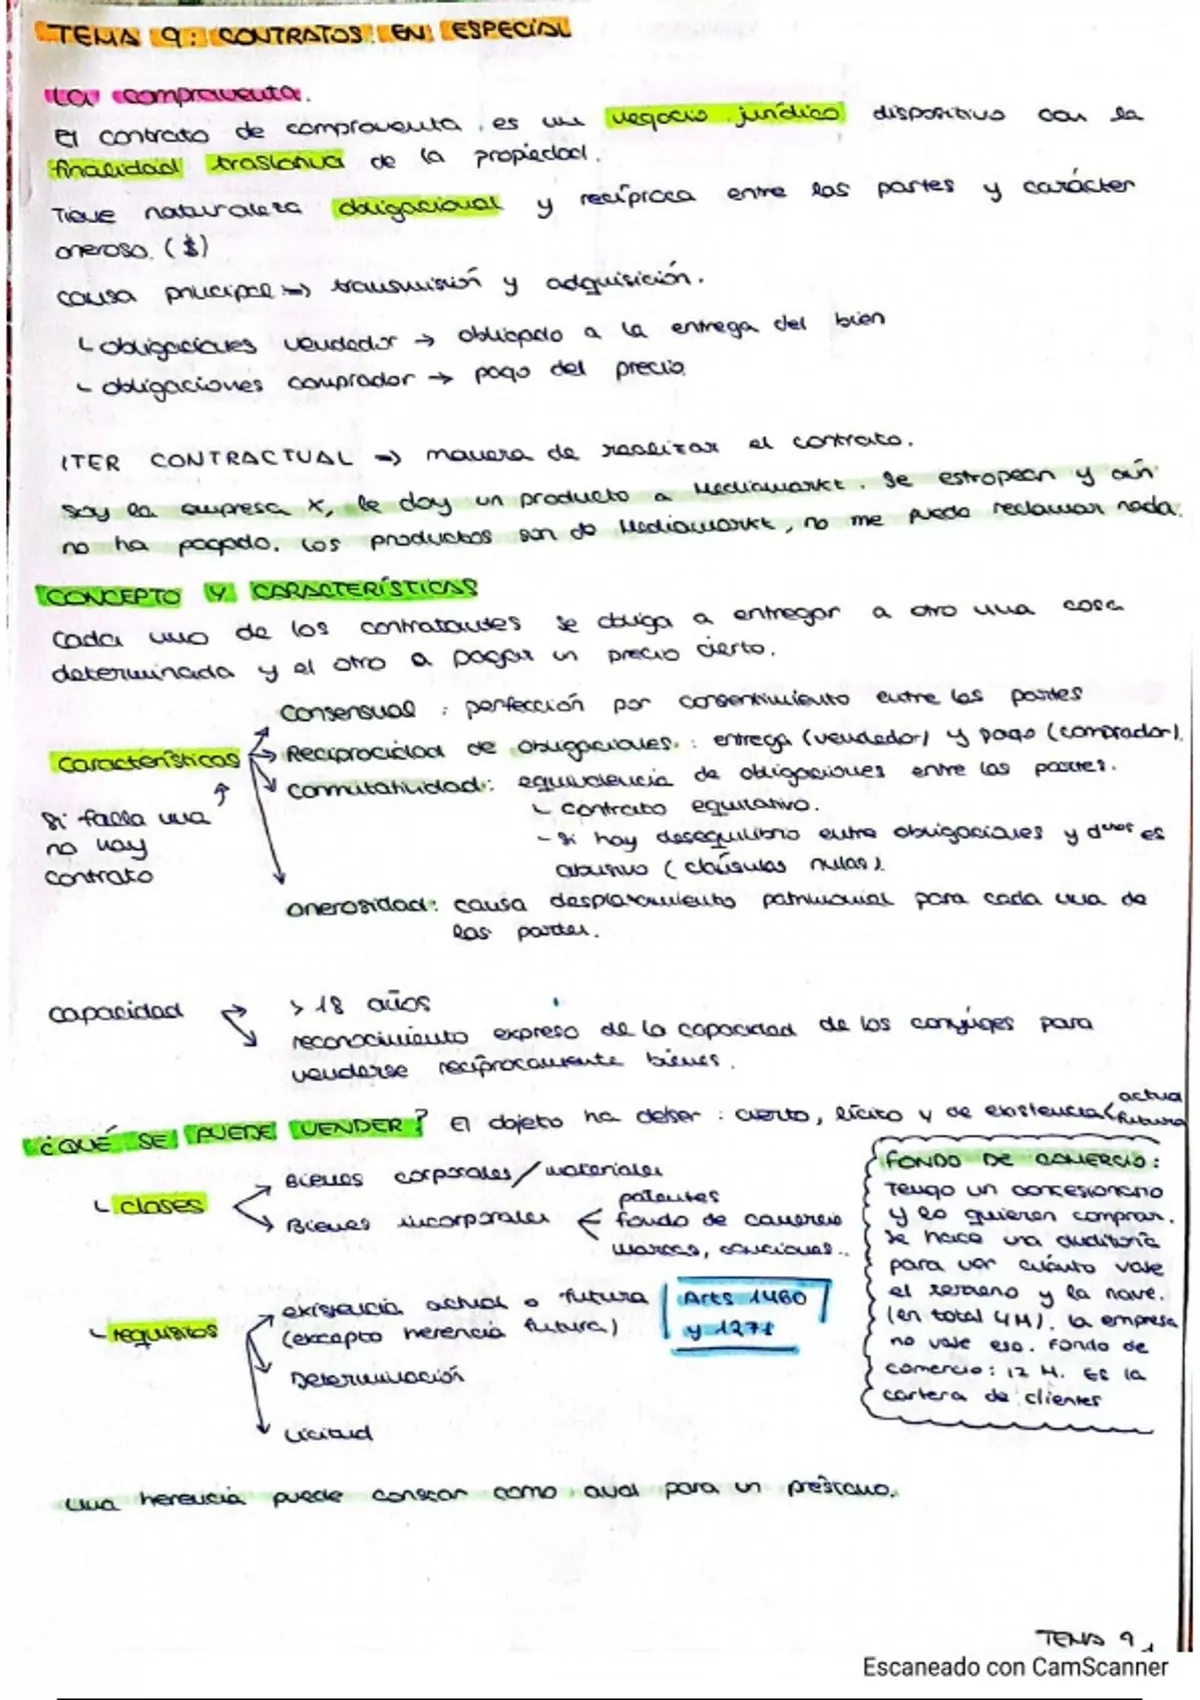 TEMA 9: CONTRATOS EN ESPECIAL
La compraventa.
El contrato de compraventa es un negocio jurídico dispositivo con la
finalidad traslativa de la propiedad.
Tiene naturaleza obligacional y recíproca entre las partes y carácter
oneroso. ($)
causa principal → transmisión y adquisición.
obligaciones vendedor → obligado a la entrega del bien
obligaciones comprador → pago del precio
ITER CONTRACTUAL → manera de realizar el contrato.
Soy la empresa X, le doy un producto a Mediamarkt. Se estropean y aún
no ha pagado. Los productos son de Mediamarkt, no me puede reclamar nada.
CONCEPTO Y CARACTERÍSTICAS
Cada uno de los contratantes se obliga a entregar a otro una cosa
determinada y el otro a pagar un precio cierto.
Consensual: perfección por consentimiento entre las partes
Características → Reciprocidad de obligaciones: entrega (vendedor) y pago (comprador).
Conmutatividad: equivalencia de obligaciones entre las partes.
Si falla una
no hay
contrato
contrato equitativo.
- Si hay desequilibrio entre obligaciones y es
abusivo (cláusulas nulas).
Onerosidad: causa desplazamiento patrimonial para cada una de
las partes.
Capacidad → > 18 años
reconocimiento expreso de la capacidad de los conyúges para
venderse recíprocamente bienes.
¿QUÉ SE PUEDE VENDER? El objeto ha deser: cierto, lícito y de existencia actual
futura
clases
Bienes corporales/materiales
Bienes incorporales
patentes
fondo de comercio
marcas, canciones..
requisitos
existencia actual o futura
(excepto herencia futura)
Arts 1460
y 1271
Determinación
Licitud
FONDO DE COMERCIO:
Tengo un concesionario
y lo quieren comprar.
Se hace una auditoría
para ver cuánto vale
el terreno y la nave.
(en total 4M). La empresa
no vale eso. Fondo de
comercio: 12 M. Es la
cartera de clientes
Una herencia puede constar como aval para un préstamo.
TEMA 9 1
Escaneado con CamScanner